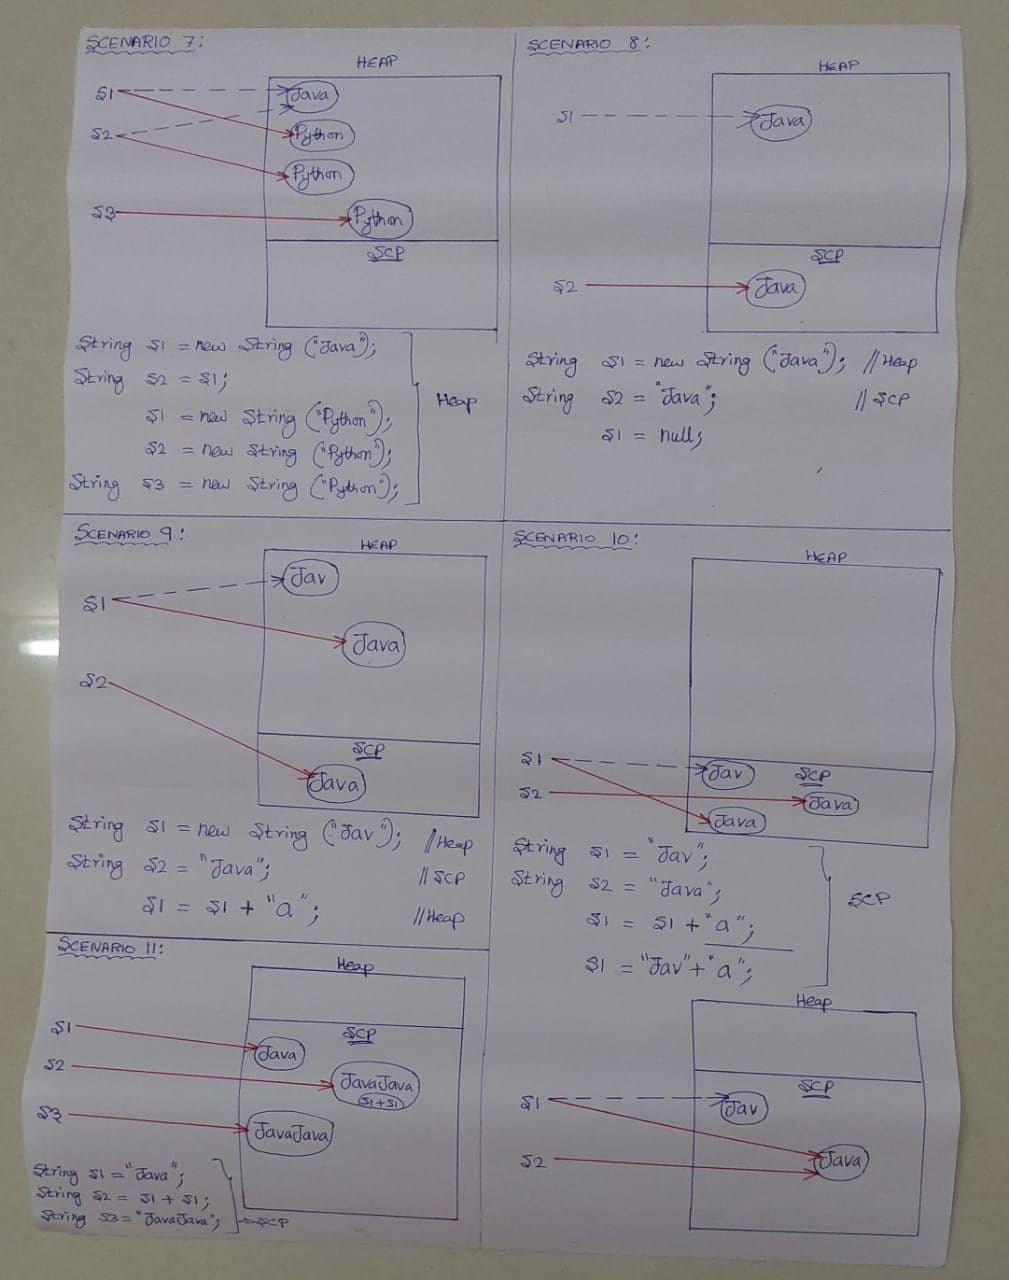 SCENARIO 7:
HEAP
S1
Java
S2
Python
Python
S3
Python
SCP
String S1 = new String ("Java");
String S2 = S1;
S1 = new String ("Python");
S2 = new String ("Python");
String S3 = new String ("Python");
Heap
SCENARIO 8:
HEAP
S1
Java
SCP
S2
Java
String S1 = new String ("Java"); //Heap
String S2 = "Java"; //SCP
S1 = null;
SCENARIO 9:
HEAP
Jav
S1
Java
S2
SCP
Java
String S1 = new String ("Jav"); //Heap
String S2 = "Java"; //SCP
S1 = S1 + "a"; //Heap
SCENARIO 10:
HEAP
S1
Jav SCP
S2
Java
Java
String S1 = "Jav";
String S2 = "Java";
S1 = S1 + "a";
S1 = "Jav" + "a";
SCP
Heap
SCP
S1
Jav
S2
Java
SCENARIO 11:
Heap
SCP
S1
Java
S2
JavaJava
S1+S1
S3
JavaJava
String S1 = "Java";
String S2 = S1 + S1;
String S3 = "JavaJava";
SCP